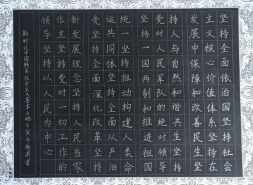 坚持全面依法治国坚持社会
主义核心价值体系坚持在
发展中保障和改善民生坚
持人与自然和谐共生坚持
党对人民军队的绝对领导
坚持一国两制和推进祖国
统一坚持推动构建人类命
运共同体坚持全面从严治
党坚持全面深化改革坚持
新发展理念坚持人民当家
作主坚持党对一切工作的
领导坚持以人民为中心